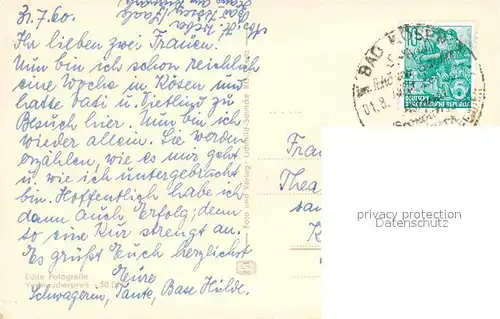 31.7.60.
Ihr lieben zwei Frauen.
Nun bin ich schon reichlich
eine Woche in Kösen und
hatte Vati u. Liebling zu
Besuch hier. Nun bin ich
wieder allein. Sie werden
erzählen, wie es mir geht
u. wie ich untergebracht
bin. Hoffentlich habe ich
dann auch Erfolg; denn
so eine Kur strengt an.
Es grüßt Euch herzlichst
Eure
Schwägerin, Tante, Base Hilde.
Echte Fotografie
Verbraucherpreis -.50
Foto und Verlag
BAD KÖSEN
01.8.
10
DEUTSCHE
DEMOKRATISCHE REPUBLIK
Frau
Thea
privacy protection
Datenschutz